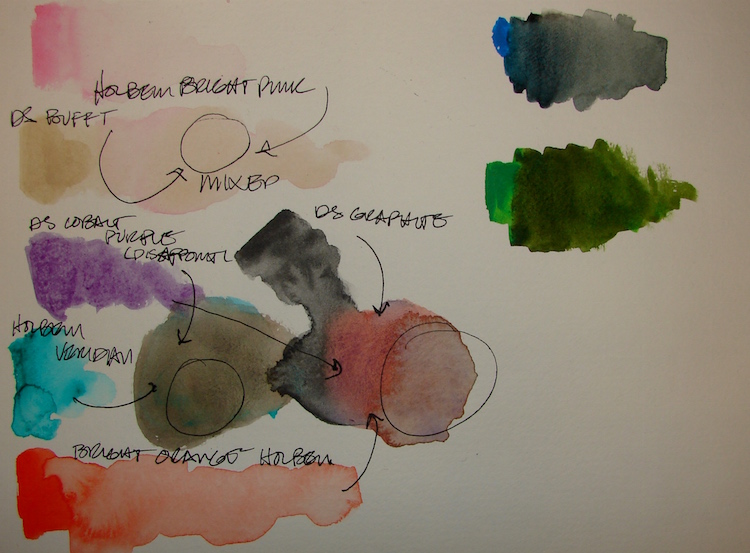 HOLBEIN BRIGHT PINK
DS BUFF T
MIXED
DS COBALT
PURPLE
DS GRAPHITE
HOLBEIN
VERIDIAN
BRIGHT ORANGE HOLBEIN